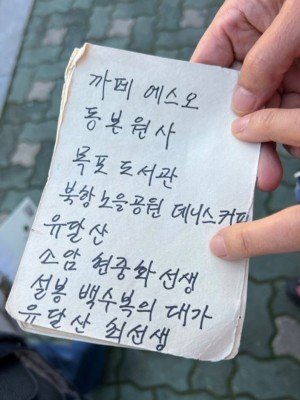 까페 에스오
동본원사
목포 도서관
북항노을공원 데니스커피
유달산
소암 현중화 선생
설봉 백수복의 대가
유달산 최선생